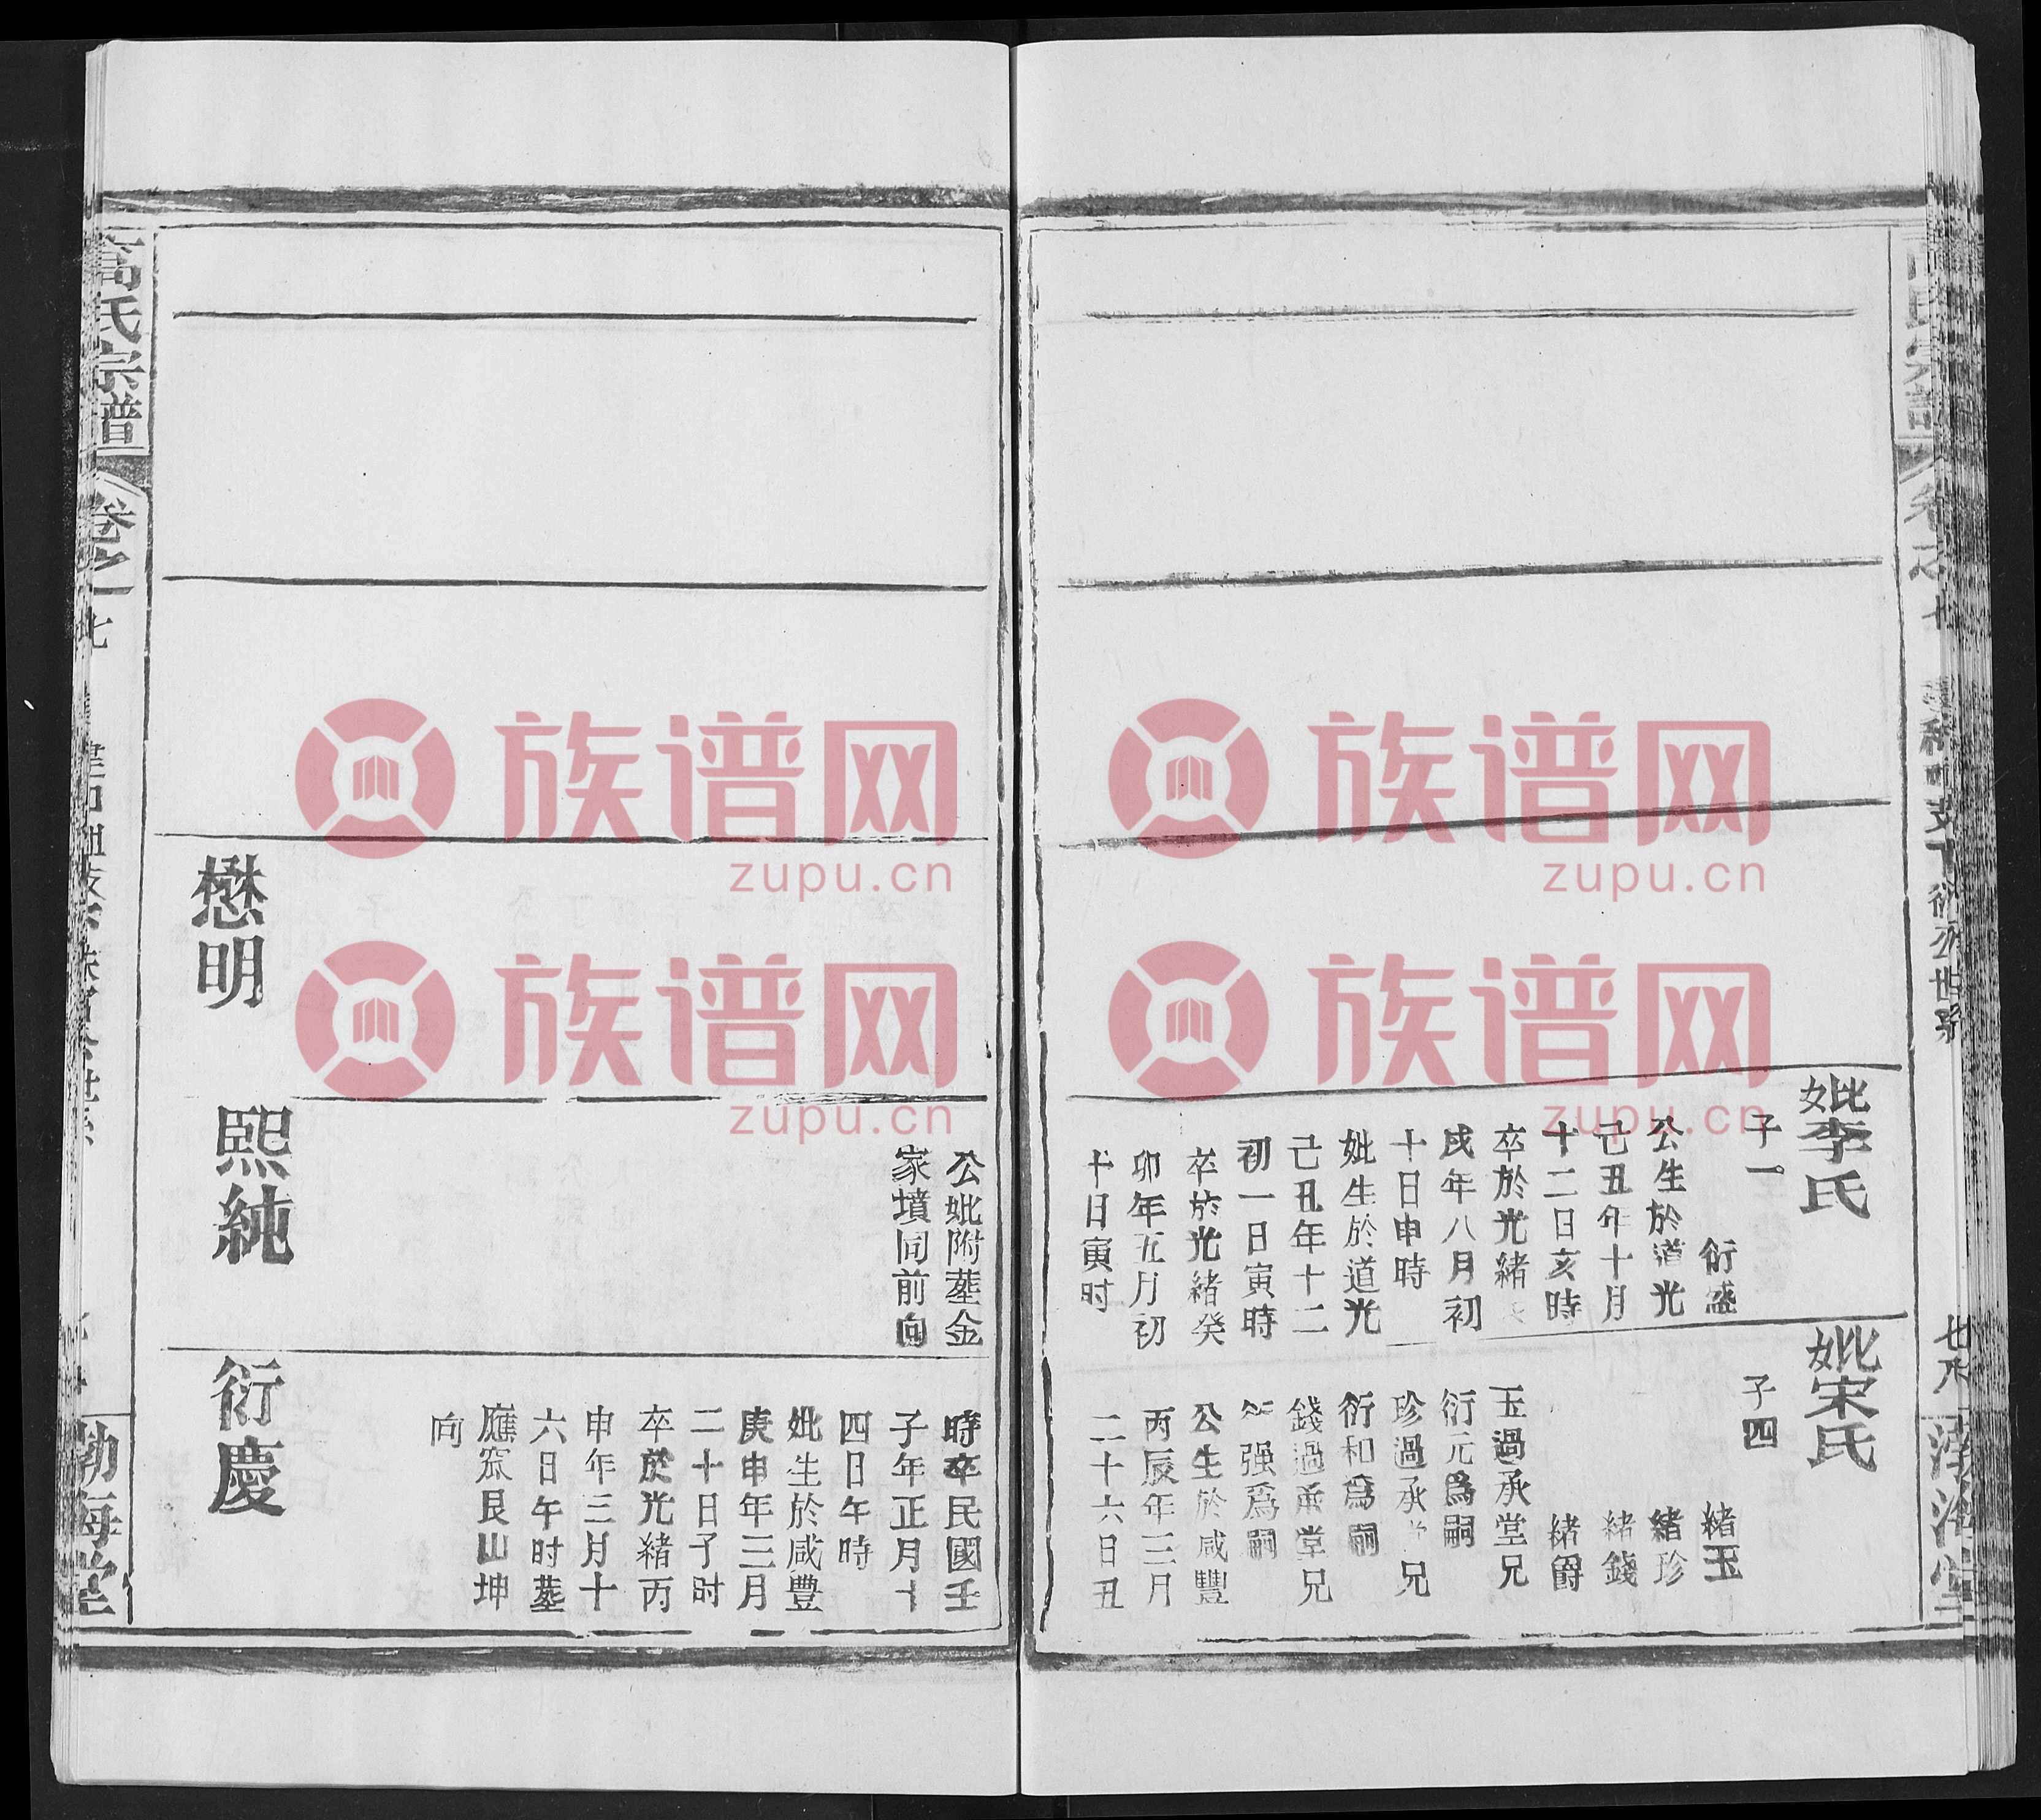 妣李氏
子一
衍盛
公生於道光
己丑年十月
十二日亥時
卒於光緒
戌年八月初
十日申時
妣生於道光
己丑年十二
初一日寅時
卒於光緒癸
卯年五月初
十日寅时
妣宋氏
子四
緒玉
緒珍
緒錢
緒爵
玉過承堂兄
衍元爲嗣
珍過承 兄
衍和爲嗣
錢過承堂兄
强爲嗣
公生於咸豐
丙辰年三月
二十六日丑
公妣附塟金
家墳同前向
時卒民國壬
子年正月十
四日午時
妣生於咸豊
庚申年三月
二十日子时
卒於光緒丙
申年三月十
六日午时塟
應窊艮山坤
向
懋明
熙純
衍慶
高氏宗譜
卷之
七
勃海堂
族谱网
zupu.cn
族谱网
zupu.cn
族谱网
zupu.cn
族谱网
zupu.cn